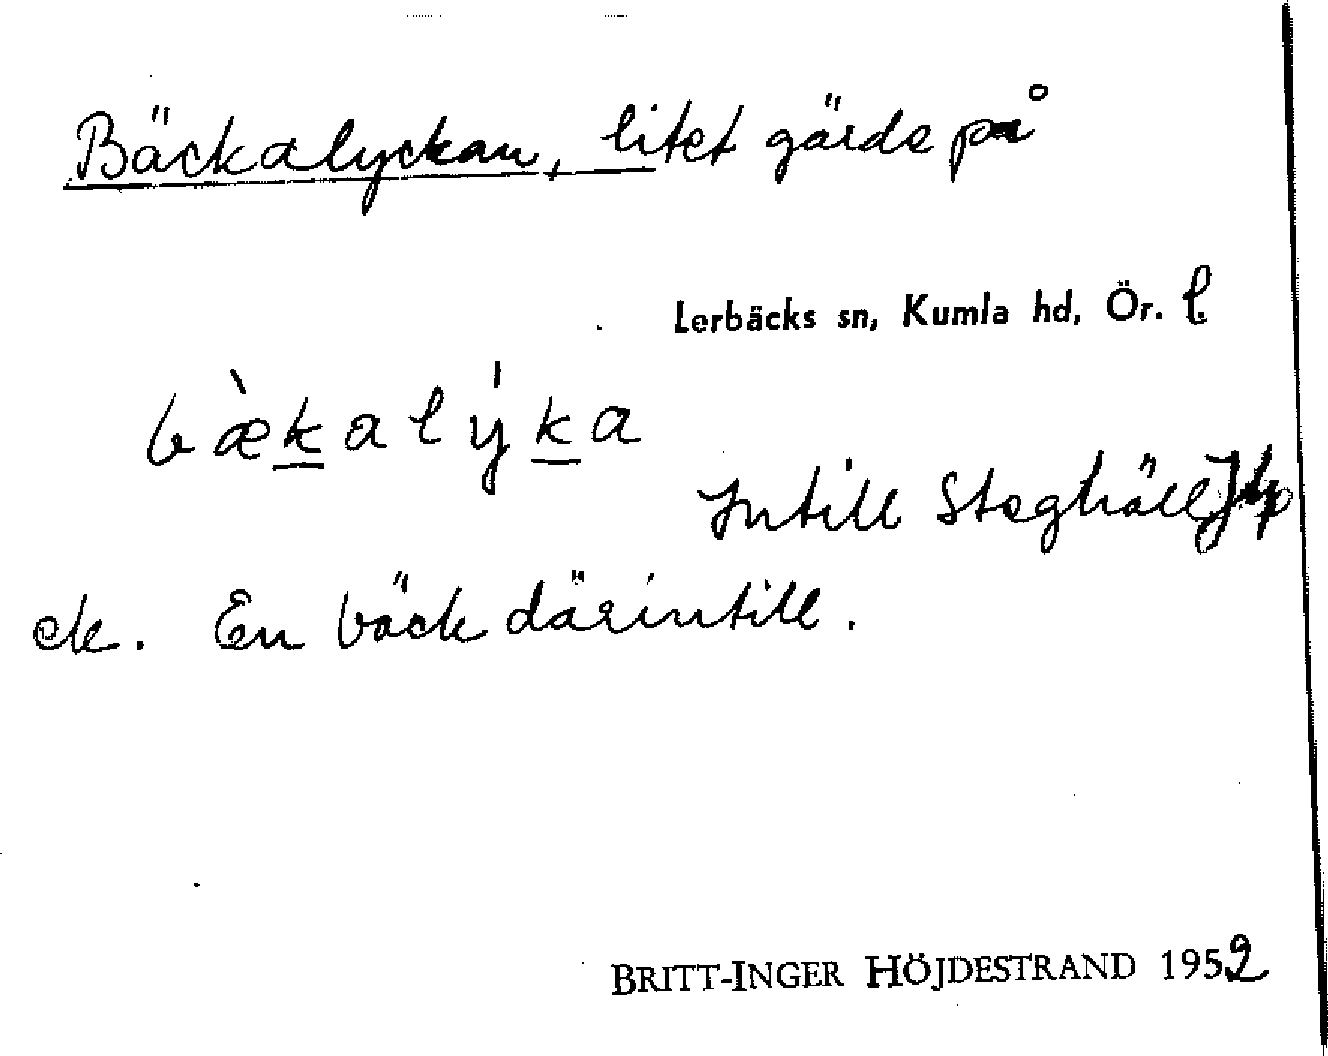 Bäckalyckan, litet gärde på
Lerbäcks sn, Kumla hd, Ör. l.
bæ̀kalýka
Intill Steghäll
ek. En bäck därintill.
BRITT-INGER HÖJDESTRAND 1952